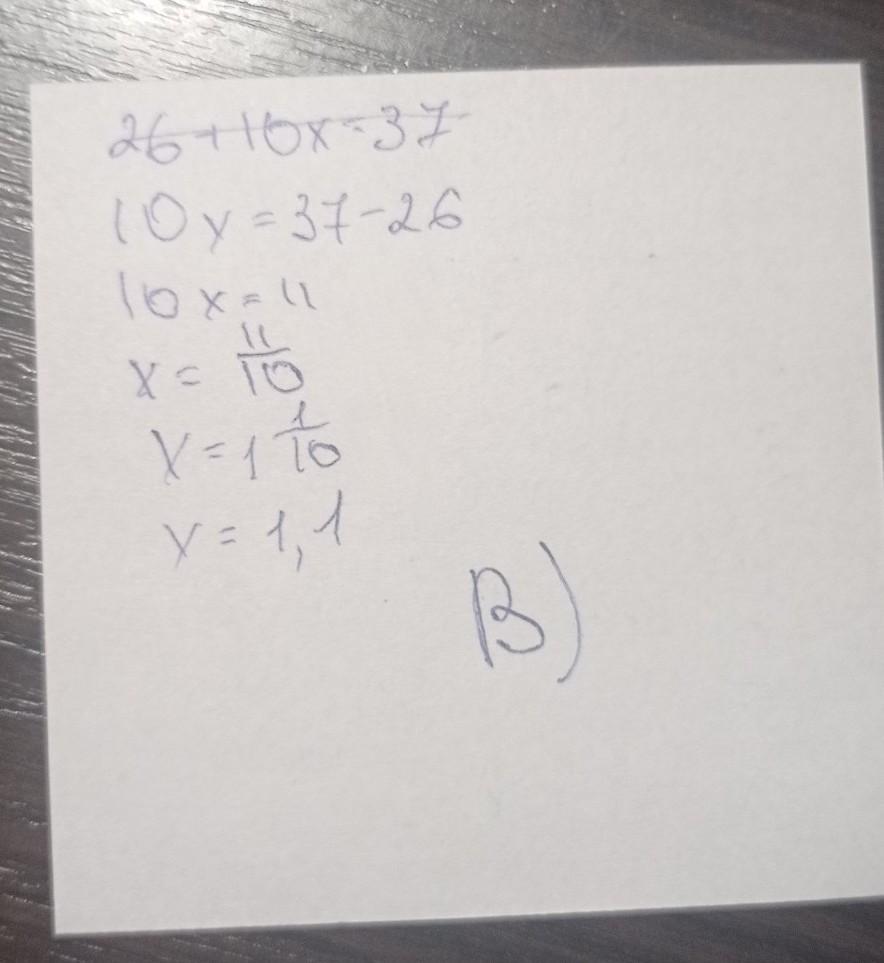 26+10x=37
10x=37-26
10x=11
x=11/10
x=1 1/10
x=1,1
B)